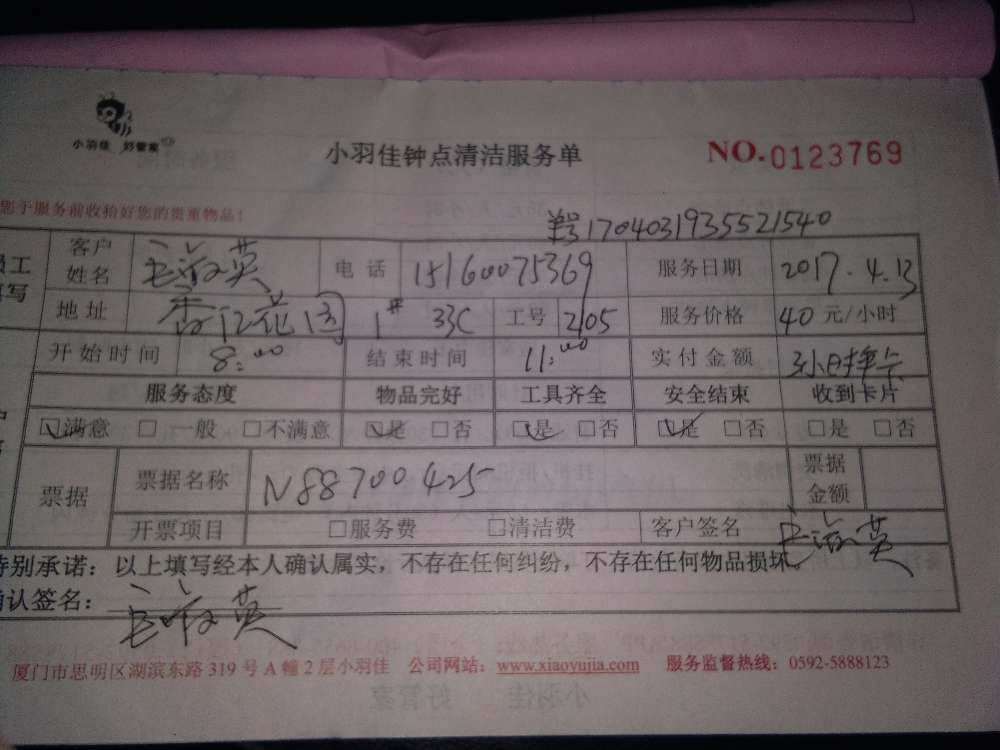 小羽佳 好管家
小羽佳钟点清洁服务单
NO.0123769
您于服务前收拾好您的贵重物品！
1704031935521540
员工填写 客户姓名 英 电话 15160075369 服务日期 2017.4.13
地址 1# 33C 工号 2105 服务价格 40 元/小时
开始时间 8:00 结束时间 11:00 实付金额 3小时
服务态度 物品完好 工具齐全 安全结束 收到卡片
☑满意 □一般 □不满意 ☑是 □否 ☑是 □否 ☑是 □否 □是 □否
票据 票据名称 N88700425 票据金额
开票项目 □服务费 □清洁费 客户签名 英
特别承诺：以上填写经本人确认属实，不存在任何纠纷，不存在任何物品损坏。
确认签名： 英
厦门市思明区湖滨东路 319 号 A 幢 2 层小羽佳 公司网站：www.xiaoyujia.com 服务监督热线：0592-5888123